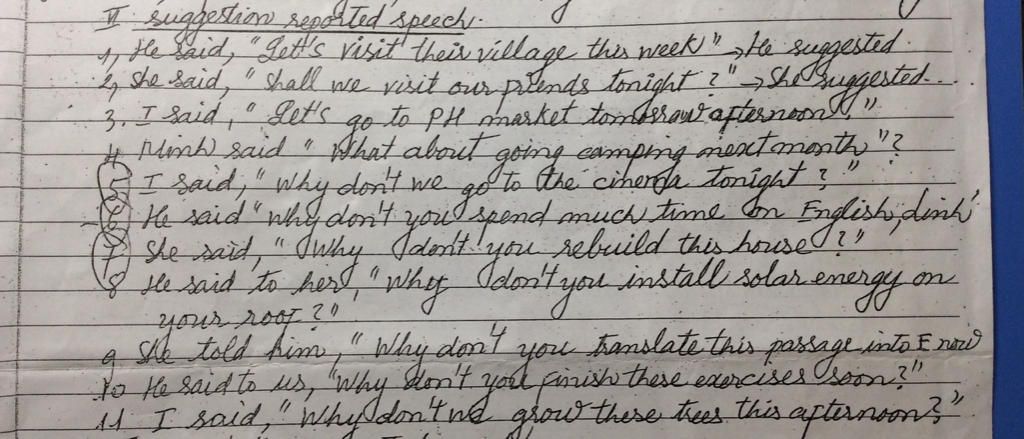 VI suggestion reported speech.
1, He said, "Let's visit their village this week" → He suggested.
2, She said, "Shall we visit our friends tonight?" → She suggested...
3. I said, "Let's go to PH market tomorrow afternoon."
4 Minh said "What about going camping next month"?
5 I said, "Why don't we go to the cinema tonight?"
6 He said "Why don't you spend much time on English, Linh"
7 She said, "Why don't you rebuild this house?"
8 He said to her, "Why don't you install solar energy on
your roof?"
9 She told him, "Why don't you translate this passage into E now
10 He said to us, "Why don't you finish these exercises soon?"
11 I said, "Why don't we grow these trees this afternoon?"